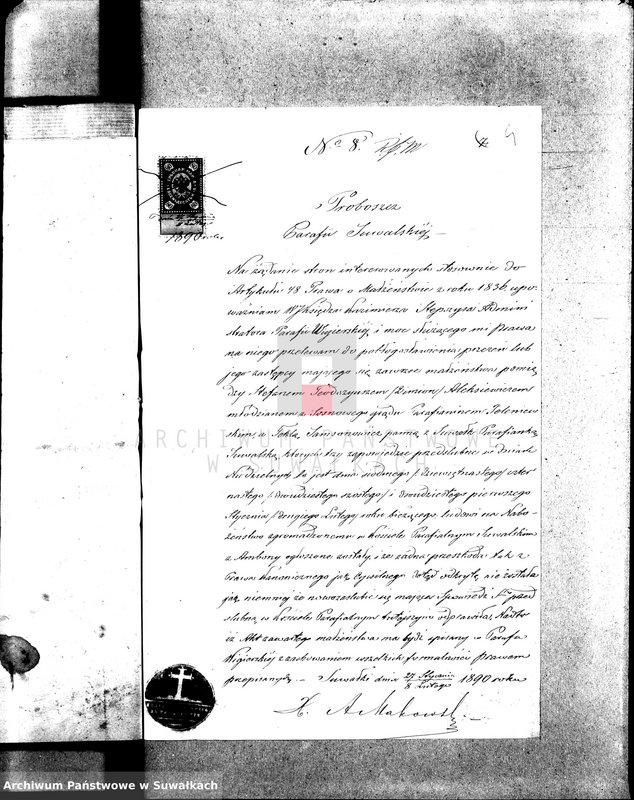 No 8.
4
1890 roku
Proboszcz
Parafii Suwalskiéj
Na żądanie stron interesowanych stosownie do
Artykułu 48 Prawa o Małżeństwie z roku 1836 upo-
ważniam W. Księdza Kazimierza Admini
stratora Parafii Wigierskiéj i moc służącego mi prawa
na niego przelewam do pobłogosławienia przezeń lub
jego zastępcy mającego się zawrzeć małżeństwa pomię
dzy Stefanem Teodozyuszem /2 imion/ Aleksiewiczem
młodzianem z Sosnowego grądu Parafianinem Jeleniew
skim, a Teklą panną z Suwałk Parafianką
Suwalską, których trzy zapowiedzie przedślubne w dniach
Niedzielnych to jest dnia siódmego /dziewiętnastego/ czter
nastego /dwudziestego szóstego/ i dwudziestego pierwszego
Stycznia /drugiego Lutego/ roku bieżącego ludowi na Nabo-
żeństwo zgromadzonemu w kościele Parafialnym Suwalskim
z Ambony ogłoszone zostały, i że żadna przeszkoda tak z
Prawa kanonicznego jako cywilnego odkrytą nie została
jako niemniej że nowozaślubić się mający Spowiedź Stą przed
ślubną w kościele Parafialnym tutejszym odprawili. Nadto
iż Akt zawartego małżeństwa ma bydź spisany w Parafii
Wigierskiéj z zachowaniem wszelkich formalności prawem
przepisanych. – Suwałki dnia 27 Stycznia / 8 Lutego 1890 roku
X. A Makowski
ARCHIWUM PAŃSTWOWE
W SUWAŁKACH
Archiwum Państwowe w Suwałkach